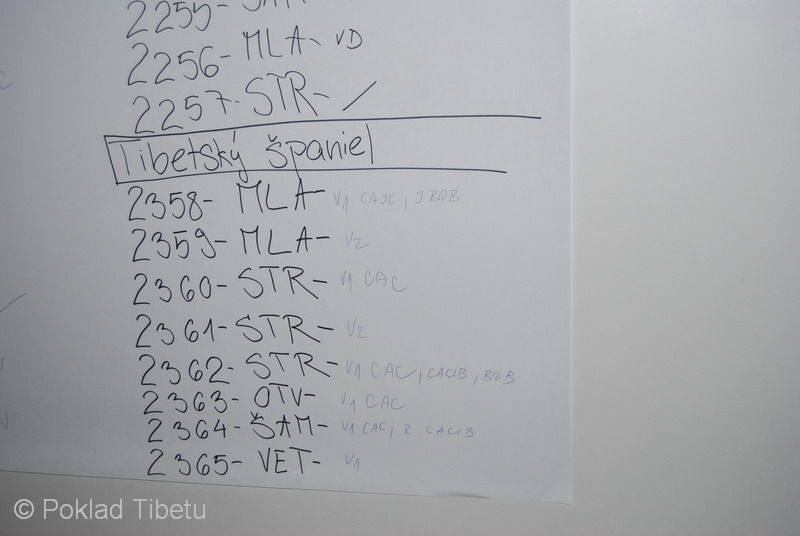 2255-
2256- MLA- VD
2257- STR- /
Tibetský španiel
2358- MLA- V1 CAJC, J BOB
2359- MLA- V2
2360- STR- V1 CAC
2361- STR- V2
2362- STR- V1 CAC, CACIB, BOB
2363- OTV- V1 CAC
2364- ŠAM- V1 CAC, R CACIB
2365- VET- V1
© Poklad Tibetu